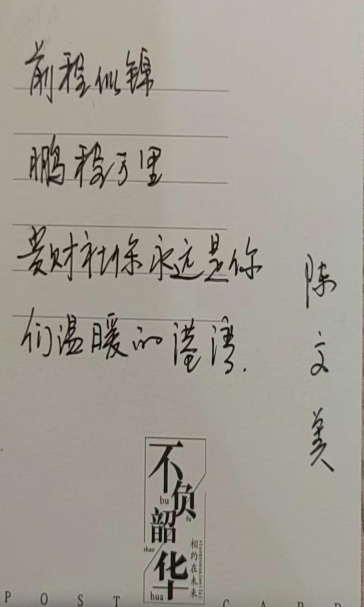 前程似锦
鹏程万里
贵财社保永远是你
们温暖的港湾.
陈文美
不负韶华
bu
fu
shao
hua
相约在未来
POST CARD